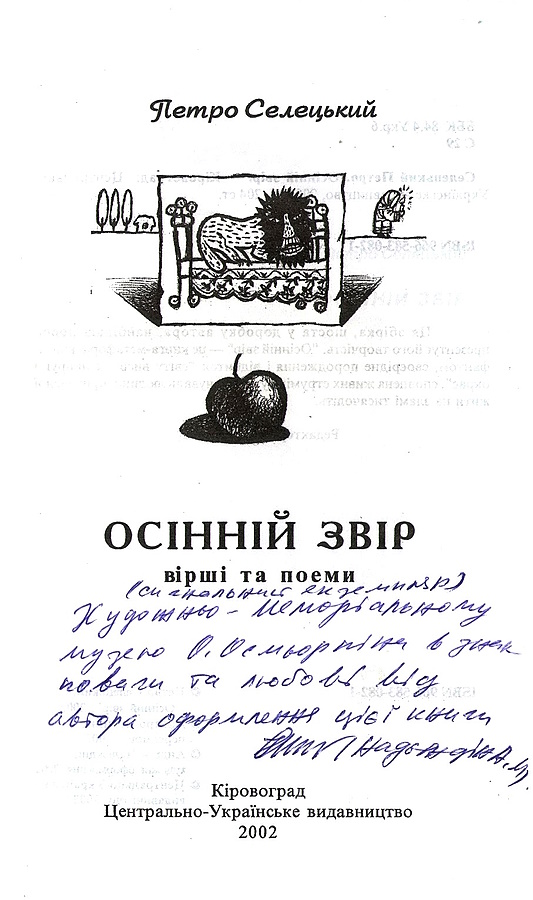 Петро Селецький
ОСІННІЙ ЗВІР
вірші та поеми
(сигнальний екземпляр)
Художньо-меморіальному
музею О. Осмьоркіна в знак
поваги та любові від
автора оформлення цієї книги
Кіровоград
Центрально-Українське видавництво
2002